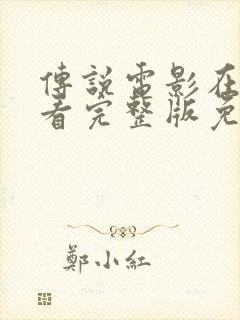 傳說電影在
看完整版免
鄭小紅